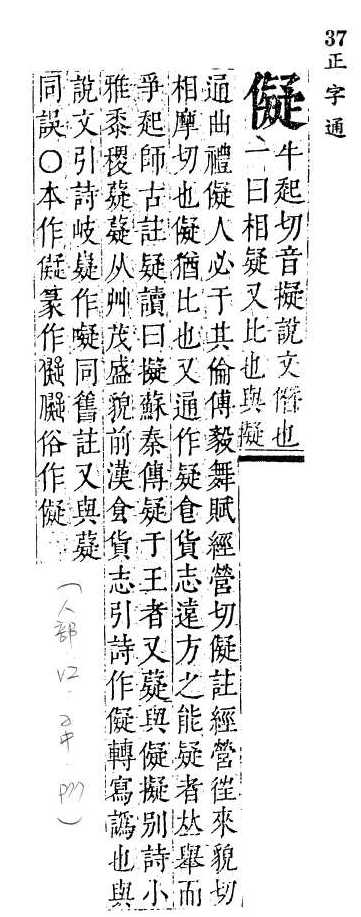 37正字通
儗
牛起切音擬說文僭也
一曰相疑又比也與擬
通曲禮儗人必于其倫傅毅舞賦經營切儗註經營徃來貌切
相摩切也儗猶比也又通作疑食貨志遠方之能疑者𠀤舉而
爭起師古註疑讀曰擬蘇秦傳疑于王者又薿與儗擬别詩小
雅黍稷薿薿从艸茂盛貌前漢食貨志引詩作儗轉寫譌也與
說文引詩岐嶷作㘈同舊註又與薿
同誤○本作儗篆作儗俗作儗
(人部12